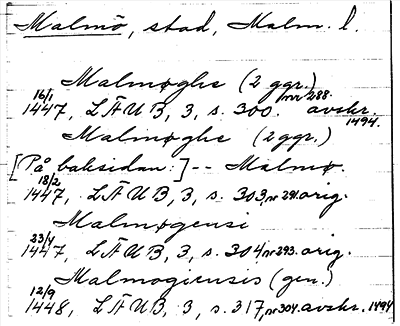 Malmö, stad, Malm. l.
Malmøghe (2 ggr.)
16/1 1447, LÄUB, 3, s. 300. nr 288. avskr. 1494.
Malmøghe (2 ggr.)
[På baksidan:] -- Malmø.
18/2 1447, LÄUB, 3, s. 303, nr 291. orig.
Malmøgensi
23/4 1447, LÄUB, 3, s. 304, nr 293. orig.
Malmogiensis (gen.)
12/9 1448, LÄUB, 3, s. 317, nr 304. avskr. 1494